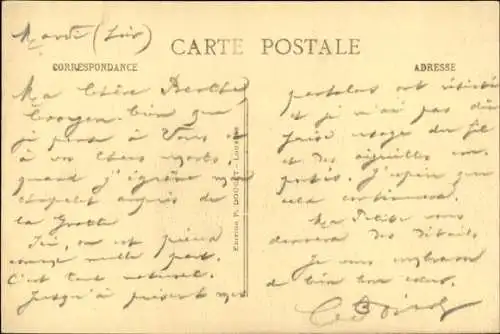 Mardi (soir)
CARTE POSTALE
CORRESPONDANCE
ADRESSE
Ma Chère Berthe,
Croyez bien que
je pense à Vous et
à vos chers morts,
quand j'égrène mon
chapelet auprès de
la Grotte
Ici, on est pieux
comme nulle part.
C'est tout naturel.
Jusqu'à présent mes
EDITION P. DOUCET - LOURDES
et je n'ai pas dû
faire usage du fil
et des aiguilles em-
portés. J'espère que
cela continuera.
Ma Petite vous
donnera des détails.
Je vous embrasse
de bien bon cœur.